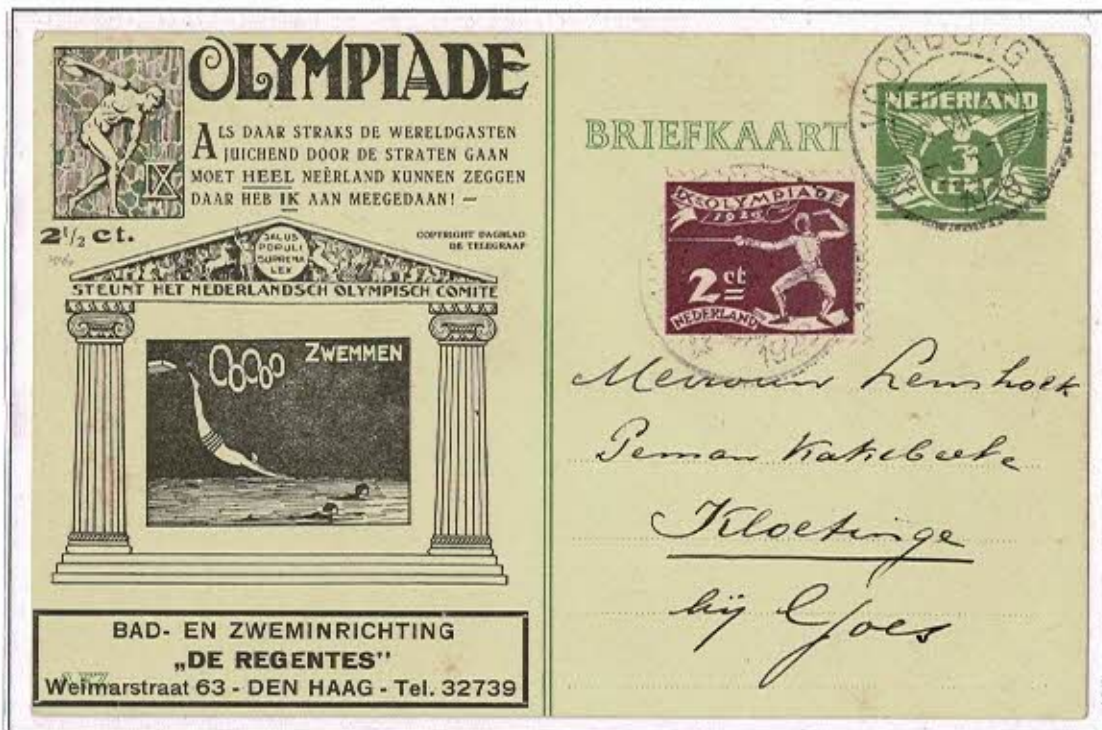 OLYMPIADE
ALS DAAR STRAKS DE WERELDGASTEN
JUICHEND DOOR DE STRATEN GAAN
MOET HEEL NEÊRLAND KUNNEN ZEGGEN
DAAR HEB IK AAN MEEGEDAAN! —
2 1/2 ct.
COPYRIGHT DAGBLAD
DE TELEGRAAF
SALUS
POPULI
SUPREMA
LEX
STEUNT HET NEDERLANDSCH OLYMPISCH COMITE
ZWEMMEN
BAD- EN ZWEMINRICHTING
„DE REGENTES"
Weimarstraat 63 - DEN HAAG - Tel. 32739
BRIEFKAART
VOORBURG
NEDERLAND
3
CENT
IXE OLYMPIADE
1928
2 ct
NEDERLAND
Mevrouw Lenshoek
Kakebeeke
Kloetinge
bij Goes